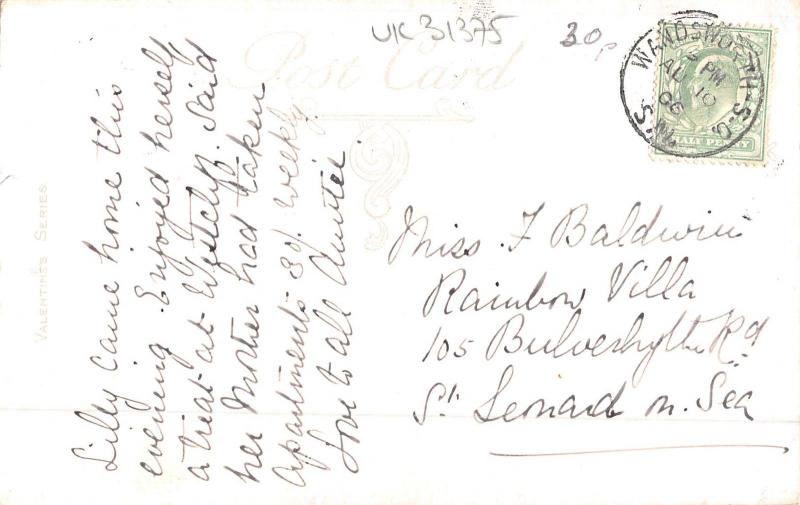 UK 31375
30p
Post Card
WANDSWORTH S.O.
PM
AU 10
06
S.W.
HALF PENNY
VALENTINES SERIES
Lilly came home this
evening. Enjoyed herself
a treat at Westcliff. Said
her Mother had taken
apartments 30/. weekly.
Love to all Auntie.
Miss F Baldwin
Rainbow Villa
105 Bulverhythe Rd
St. Leonard on. Sea